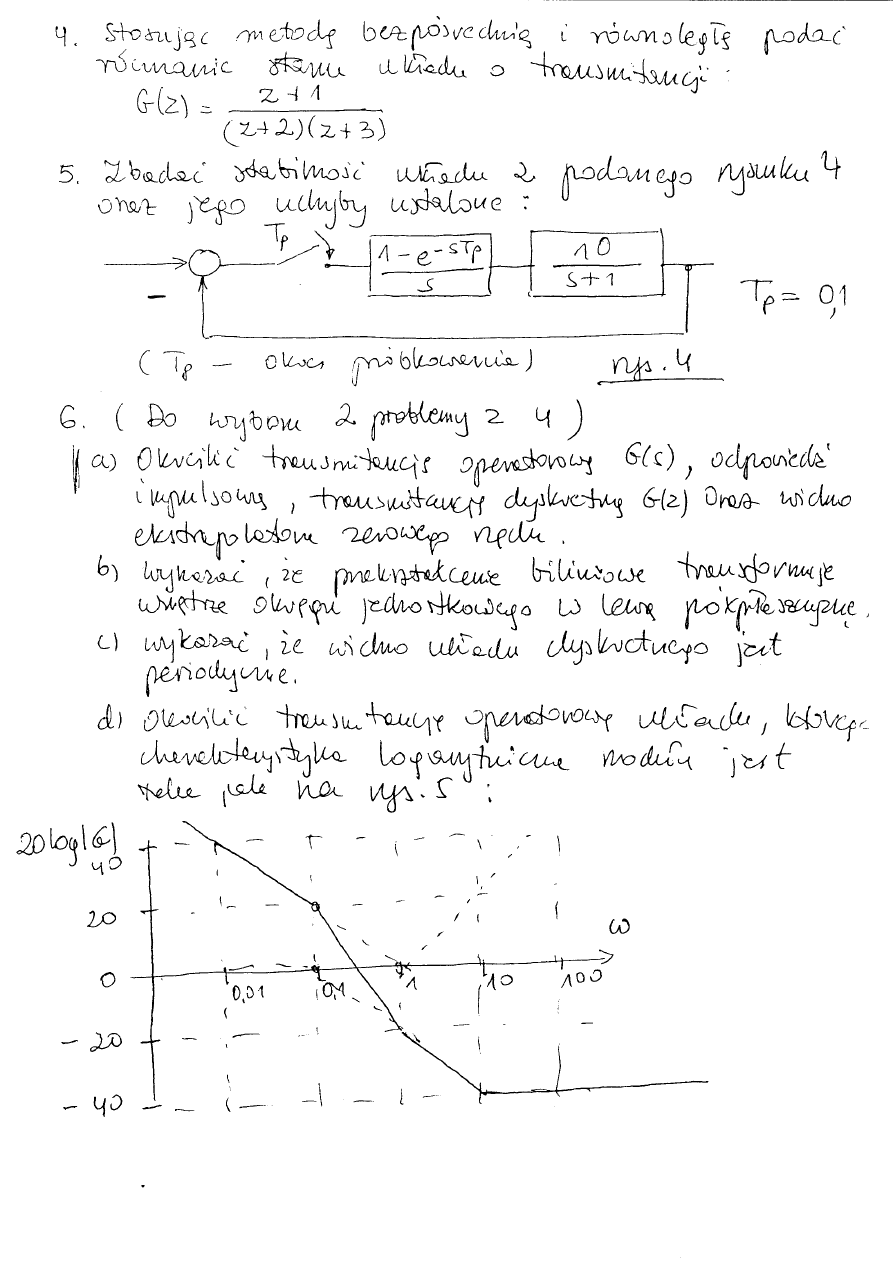 4. Stosując metodę bezpośrednią i równoległą podać
równanie stanu układu o transmitancji:
G(z) = z+1 / (z+2)(z+3)
5. Zbadać stabilność układu z podanego rysunku 4
oraz jego uchyby ustalone:
Tp
1-e-sTp / s
10 / s+1
Tp = 0,1
(Tp – okres próbkowania) rys. 4
6. (Do wyboru 2 problemy z 4)
a) Określić transmitancję operatorową G(s), odpowiedź
impulsową, transmitancję dyskretną G(z) oraz widmo
ekstrapolatora zerowego rzędu.
b) wykazać, że przekształcenie biliniowe transformuje
wnętrze okręgu jednostkowego w lewą półpłaszczyznę.
c) wykazać, że widmo układu dyskretnego jest
periodyczne.
d) Określić transmitancję operatorową układu, którego
charakterystyka logarytmiczna modułu jest
taka jak na rys. 5:
20log|G|
40
20
ω
0
0,01 0,1 1 10 100
-20
-40